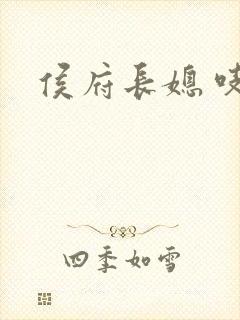 侯府長媳
四季如雪